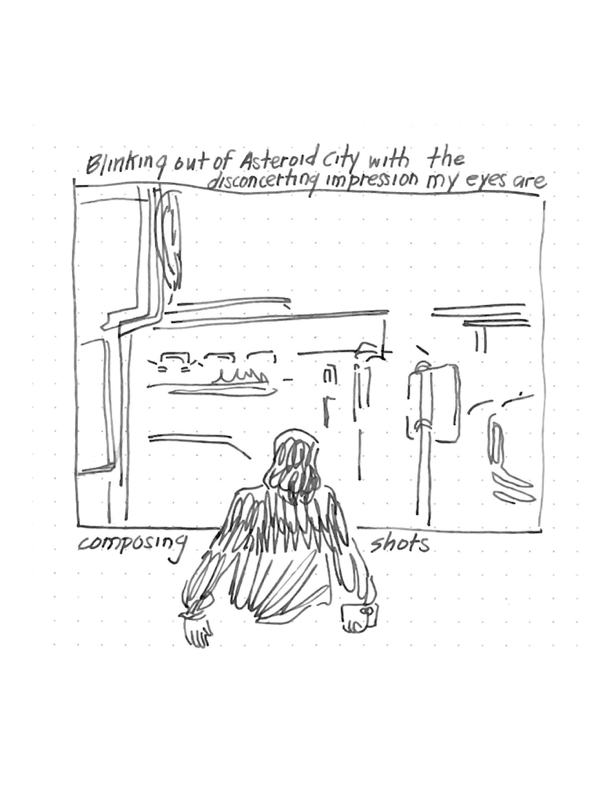 Blinking out of Asteroid City with the
disconcerting impression my eyes are
composing shots